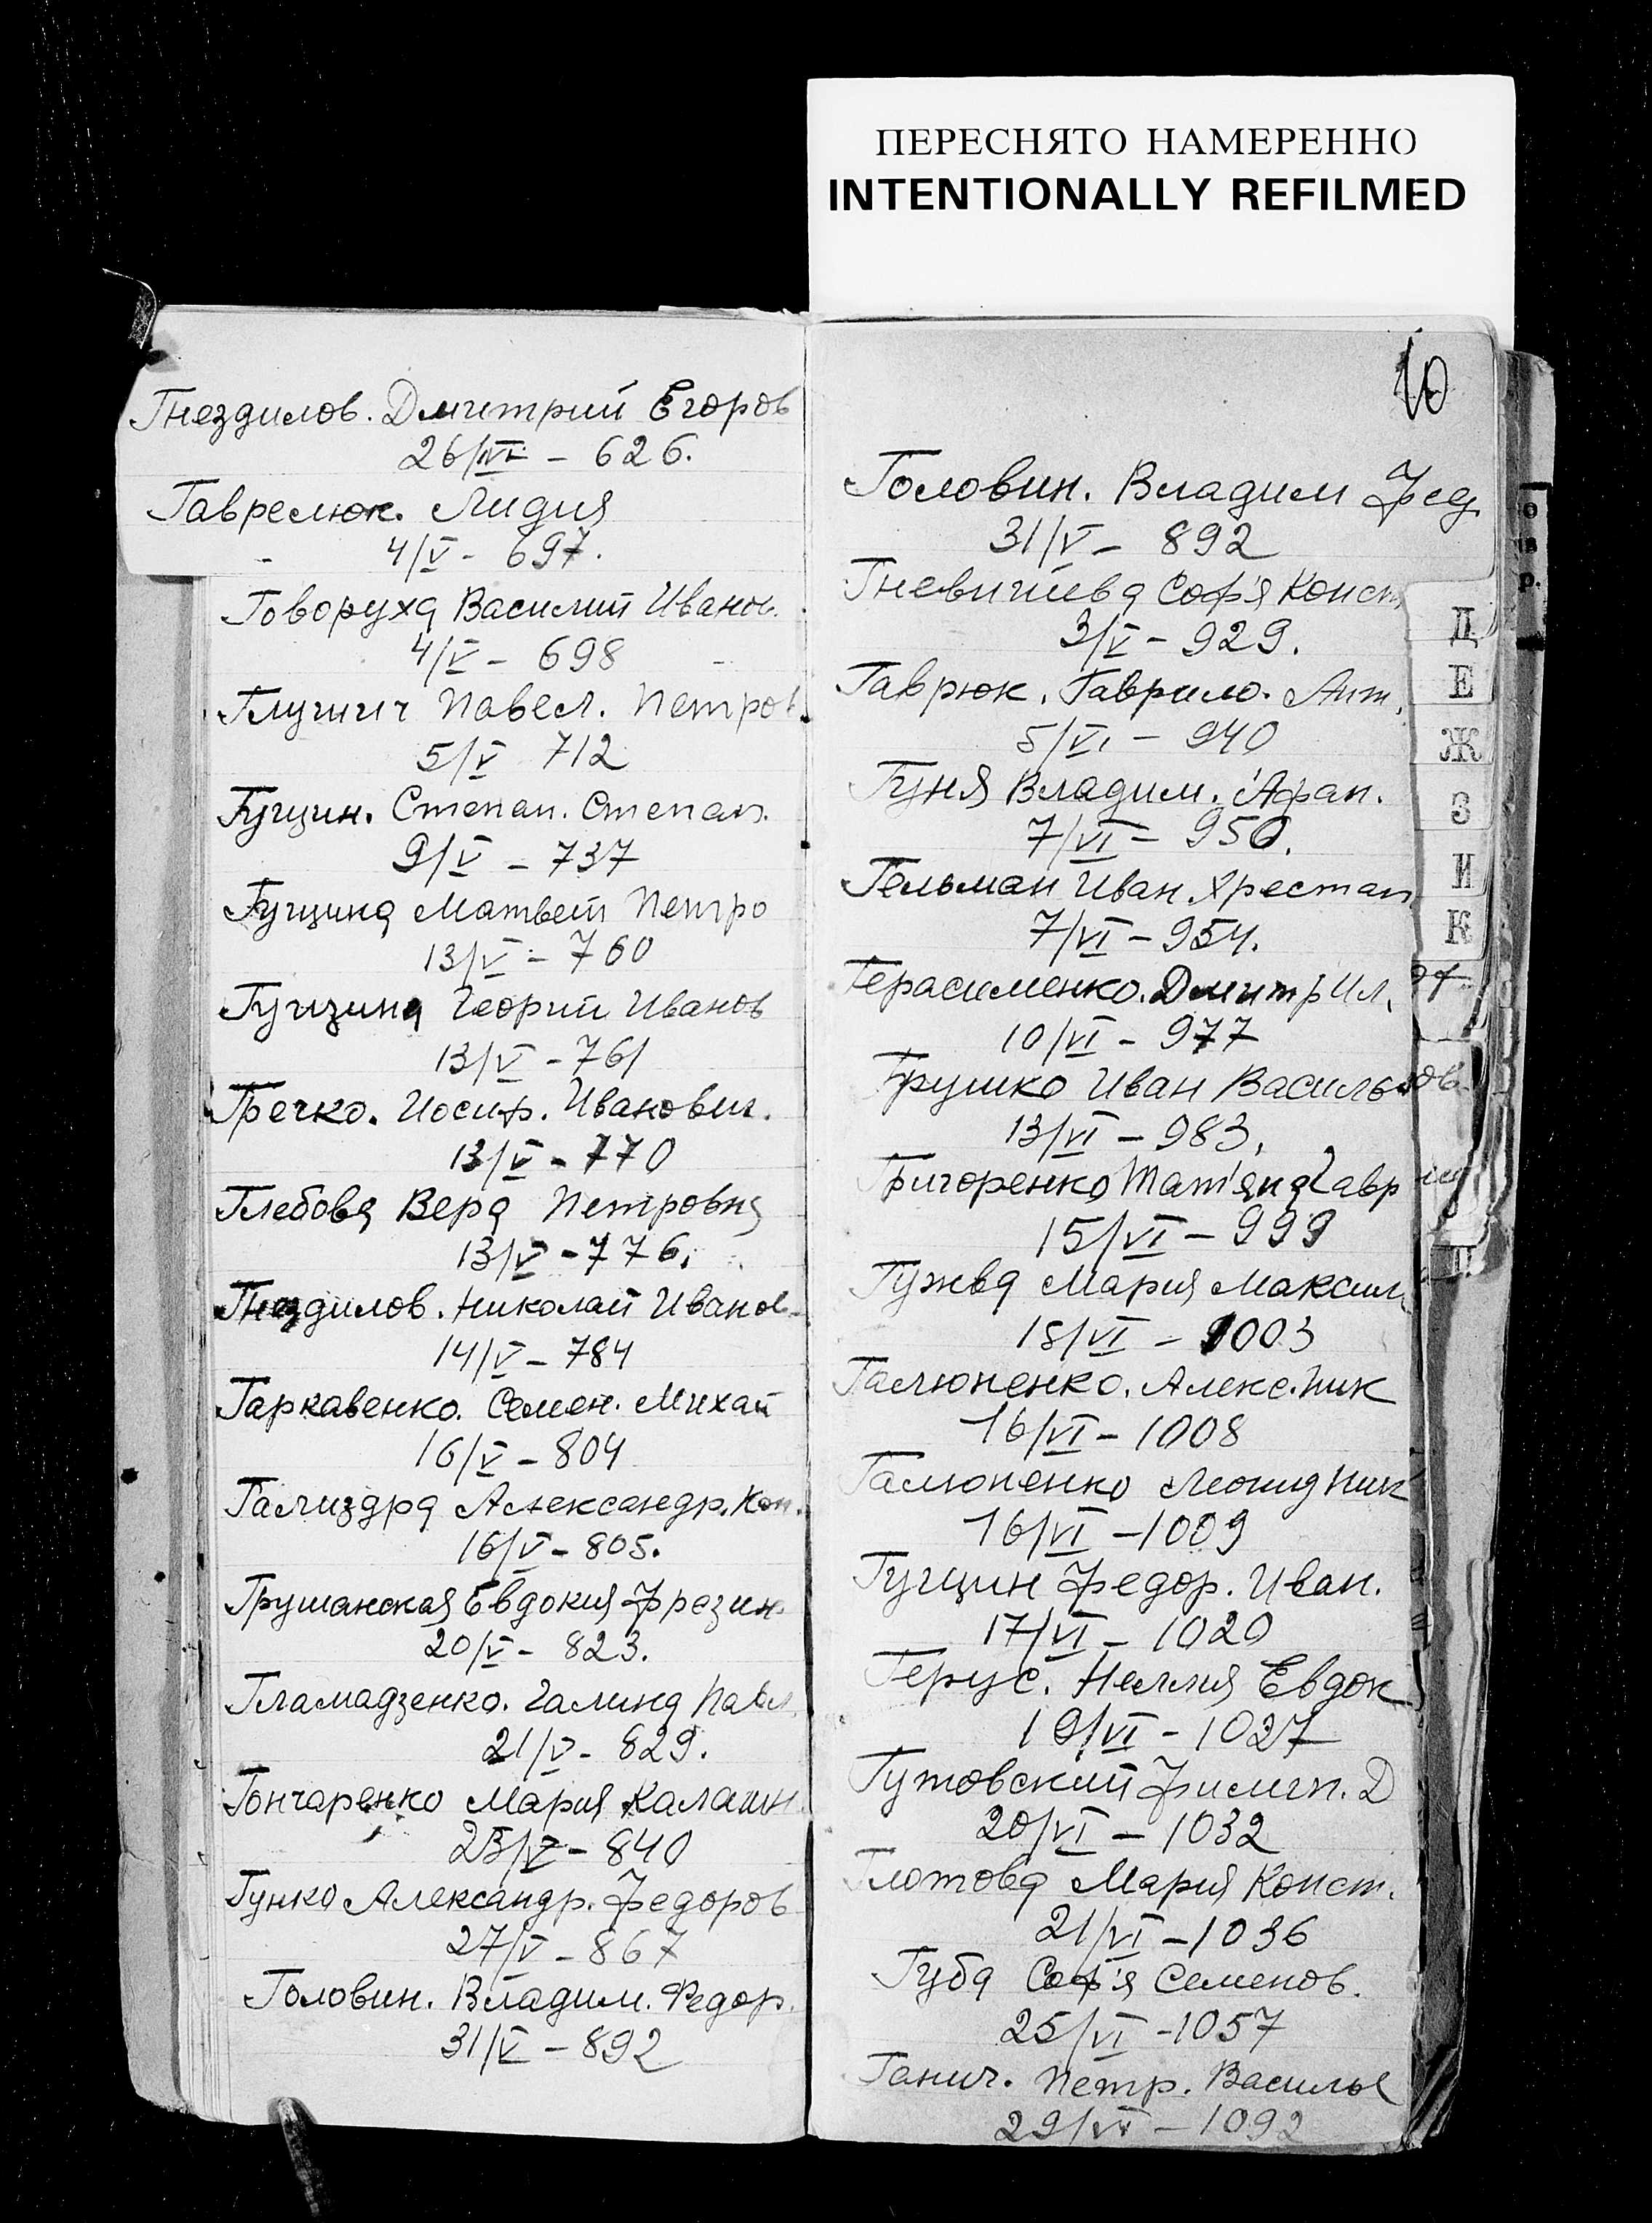 ПЕРЕСНЯТО НАМЕРЕННО
INTENTIONALLY REFILMED
Гнездилов. Дмитрий Егоров
26/VI - 626.
Гаврелюк. Лидия
4/V - 697.
Говоруха Василий Иванов.
4/V - 698
Глушич Павел. Петров
5/V 712
Гущин. Степан. Степан.
9/V - 737
Гущина Матвей Петро
13/V - 760
Гущина Георгий Иванов
13/V - 761
Гречко. Иосиф. Иванович.
13/V - 770
Глебова Вера Петровна
13/V - 776.
Гнездилов. Николай Иванов
14/V - 784
Гаркавенко. Семен. Михай
16/V - 804
Гализдра Александр. Кон.
16/V - 805.
Грушанская Евдокия
20/V - 823.
Гламадзенко. Галина Павл
21/V - 829.
Гончаренко Мария Калашн
23/V - 840
Гунко Александр. Федоров
27/V - 867
Головин. Владим. Федор.
31/V - 892
10
Головин. Владим Фед.
31/V - 892
Софья Конст
3/V - 929.
Гаврюк. Гаврило. Ант.
5/VI - 940
Гуня Владим. Афан.
7/VI - 950.
Гельман Иван. Хрестан
7/VI - 954.
Герасименко. Дмитр Ил.
10/VI - 977
Грушко Иван Василь
13/VI - 983.
Григоренко Татьяна Гавр
15/VI - 999
Гужва Мария Максим
18/VI - 1003
Галюненко. Алекс. Ник
16/VI - 1008
Галюненко Леонид Ник
16/VI - 1009
Гущин Федор. Иван.
17/VI - 1020
Герус. Неллия Евдок
19/VI - 1027
Гутовский Филип. Д
20/VI - 1032
Глотова Мария Конст.
21/VI - 1036
Губа Софья Семенов.
25/VI - 1057
Ганич. Петр. Василье
29/VI - 1092
Д
Е
Ж
З
И
К